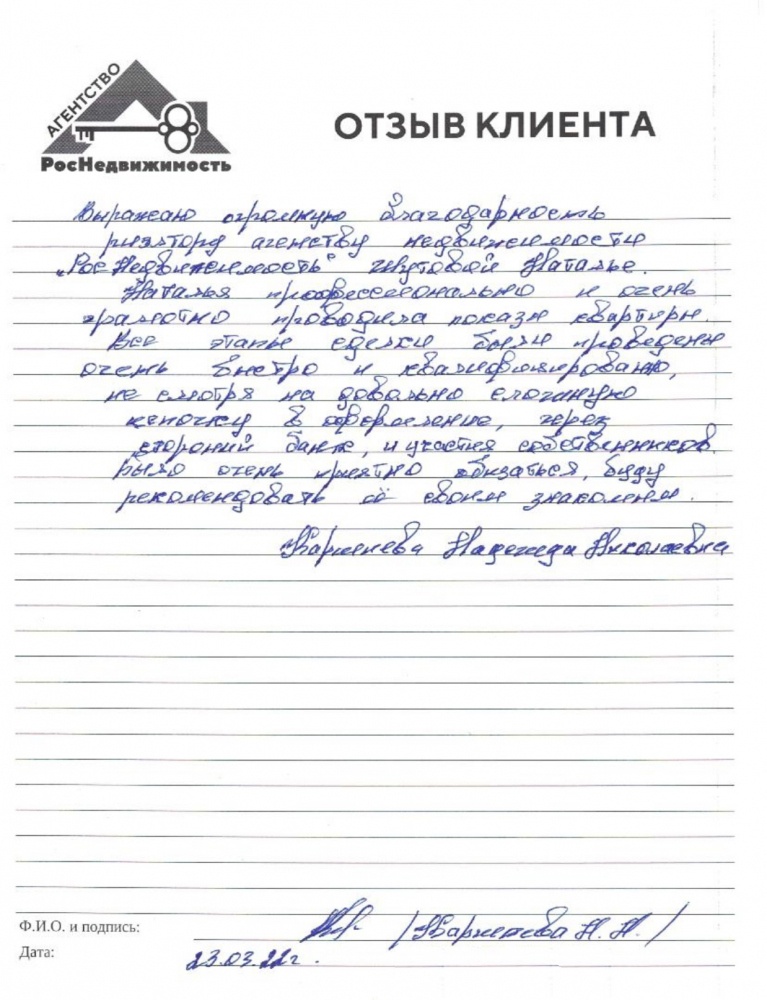 АГЕНТСТВО
РосНедвижимость
ОТЗЫВ КЛИЕНТА
Выражаю огромную благодарность
риэлтору агенству недвижимости
"РосНедвижимость" Шутовой Наталье.
Наталья профессионально и очень
грамотно проводила показы квартиры.
Все этапы сделки были проведены
очень быстро и квалифицированно,
не смотря на довольно сложную
цепочку в оформление, через
стороний банк, и участия собственников.
Было очень приятно обизаться, буду
рекомендовать её своим знакомым.
Надежда Николаевна
Ф.И.О. и подпись: Н.Н./
Дата: 23.03.22г.